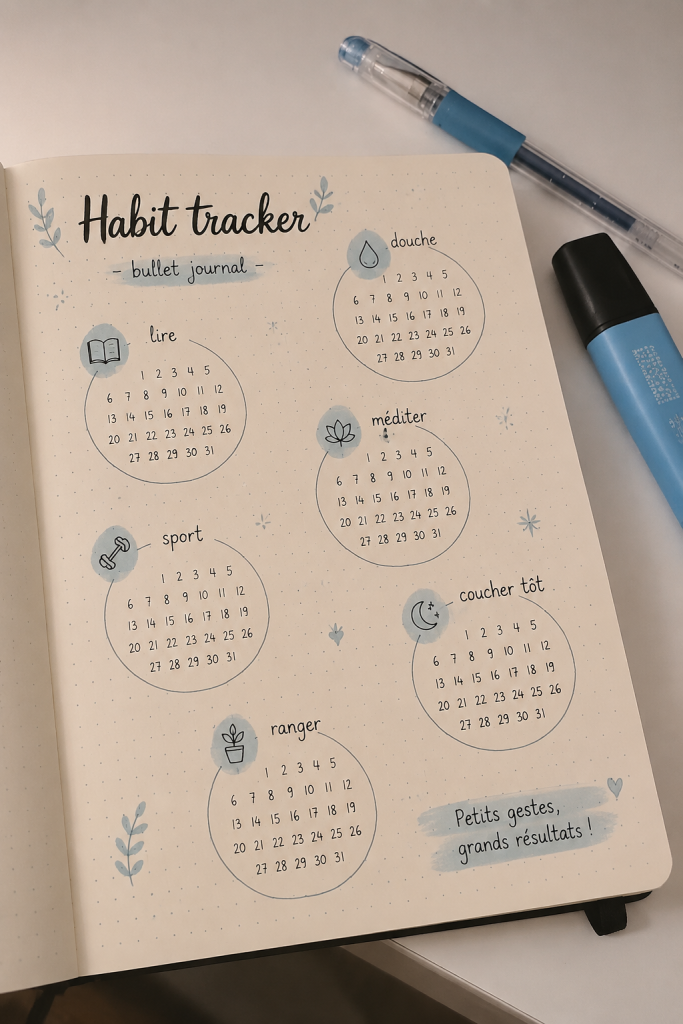 Habit tracker
- bullet journal -
douche
1 2 3 4 5
6 7 8 9 10 11 12
13 14 15 16 17 18 19
20 21 22 23 24 25 26
27 28 29 30 31
lire
1 2 3 4 5
6 7 8 9 10 11 12
13 14 15 16 17 18 19
20 21 22 23 24 25 26
27 28 29 30 31
méditer
1 2 3 4 5
6 7 8 9 10 11 12
13 14 15 16 17 18 19
20 21 22 23 24 25 26
27 28 29 30 31
sport
1 2 3 4 5
6 7 8 9 10 11 12
13 14 15 16 17 18 19
20 21 22 23 24 25 26
27 28 29 30 31
coucher tôt
1 2 3 4 5
6 7 8 9 10 11 12
13 14 15 16 17 18 19
20 21 22 23 24 25 26
27 28 29 30 31
ranger
1 2 3 4 5
6 7 8 9 10 11 12
13 14 15 16 17 18 19
20 21 22 23 24 25 26
27 28 29 30 31
Petits gestes,
grands résultats !